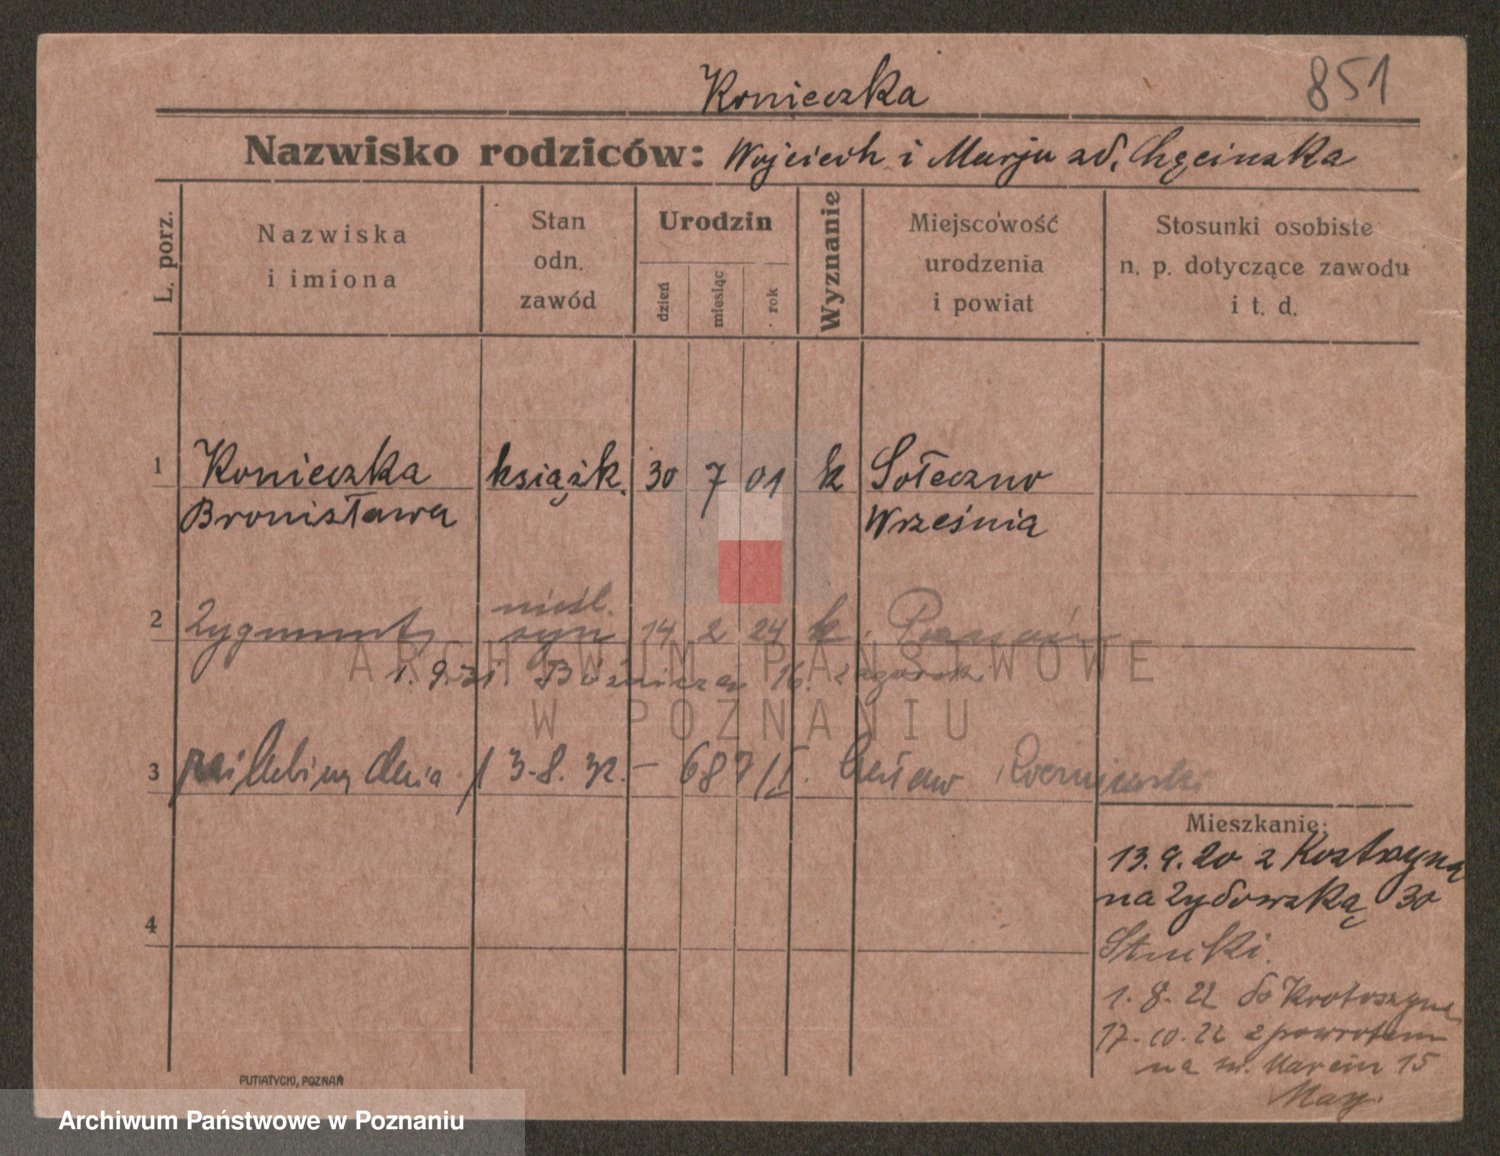 Konieczka
851
Nazwisko rodziców: Wojciech i Marja zd. Chęcinska
L. porz.
Nazwiska
i imiona
Stan
odn.
zawód
Urodzin
dzień
miesiąc
rok
Wyznanie
Miejscowość
urodzenia
i powiat
Stosunki osobiste
n. p. dotyczące zawodu
i t. d.
1 Konieczka książk. 30 7 01 k Sołeczno
Bronisława Września
nieśl.
2 Zygmunt syn 14 2 24 k. Poznań
1. 9. 31. Bóżnicza 16.
ARCHIWUM PAŃSTWOWE
W POZNANIU
3 dnia 13.8.32. - 687/II.
Mieszkanie:
13.9.20 z Kostrzyna
na Żydowską 30
4
Stuki.
1.8.22 do Krotoszyna
17.10.22 z powrotem
na św. Marcin 15
May.
PUTIATYCKI, POZNAŃ
Archiwum Państwowe w Poznaniu